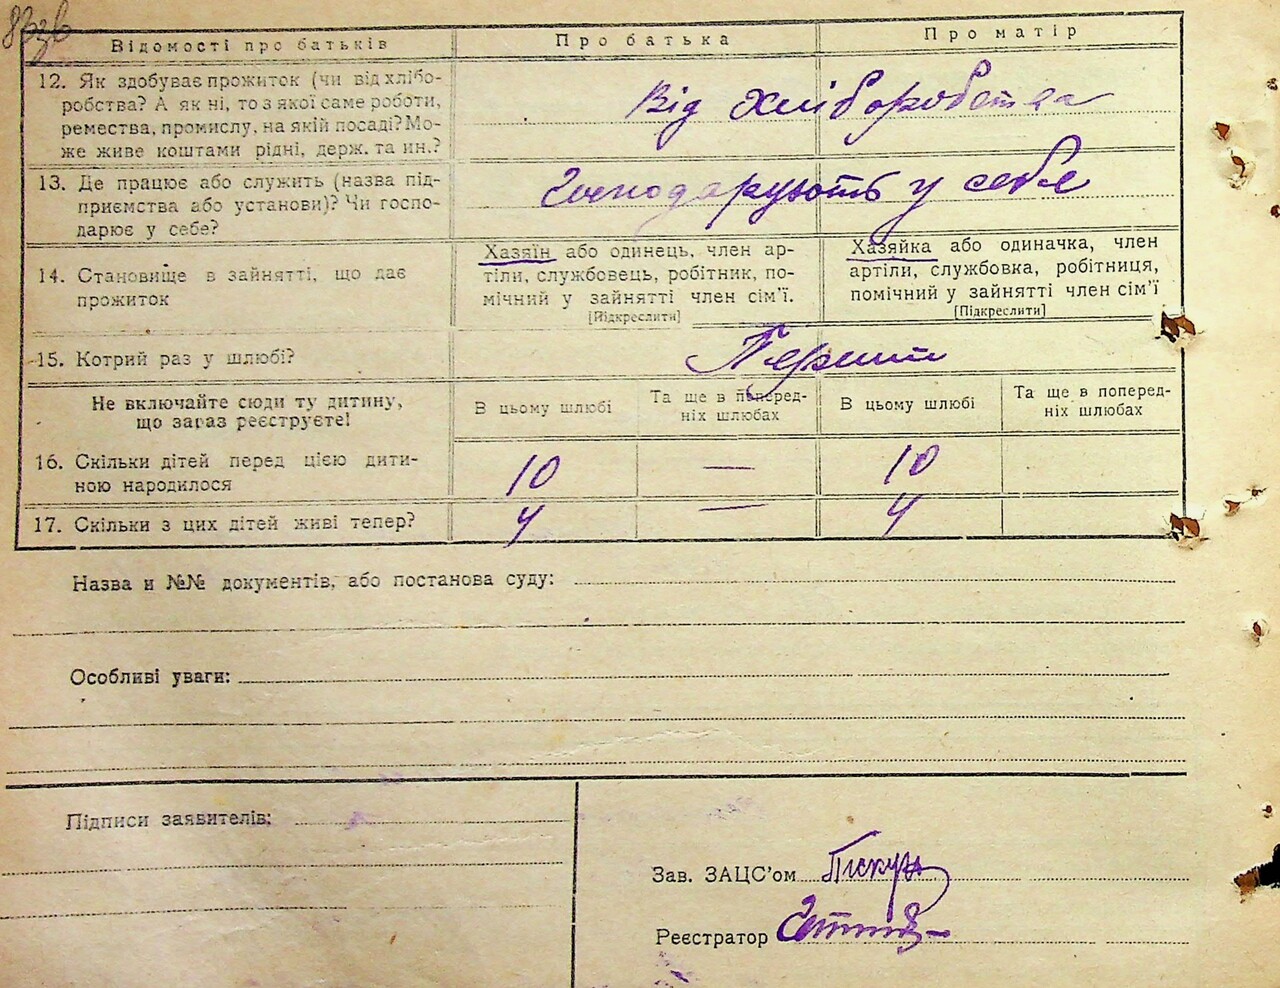 Відомості про батьків
Про батька
Про матір
12. Як здобуває прожиток (чи від хлібо-
робства? А як ні, то з якої саме роботи,
ремества, промислу, на якій посаді? Мо-
же живе коштами рідні, держ. та ин.?
Від хліборобства
13. Де працює або служить (назва під-
приємства або установи)? Чи госпо-
дарює у себе?
Господарують у себе
14. Становище в зайнятті, що дає
прожиток
Хазяїн або одинець, член ар-
тіли, службовець, робітник, по-
мічний у зайнятті член сім'ї.
[Підкреслити]
Хазяйка або одиначка, член
артіли, службовка, робітниця,
помічний у зайнятті член сім'ї
[Підкреслити]
15. Котрий раз у шлюбі?
Перший
Не включайте сюди ту дитину,
що зараз реєструєте!
В цьому шлюбі
Та ще в поперед-
ніх шлюбах
В цьому шлюбі
Та ще в поперед-
ніх шлюбах
16. Скільки дітей перед цією дити-
ною народилося
10 — 10
17. Скільки з цих дітей живі тепер?
4 — 4
Назва и №№ документів, або постанова суду:
Особливі уваги:
Підписи заявителів:
Зав. ЗАЦС'ом Пискун
Реєстратор